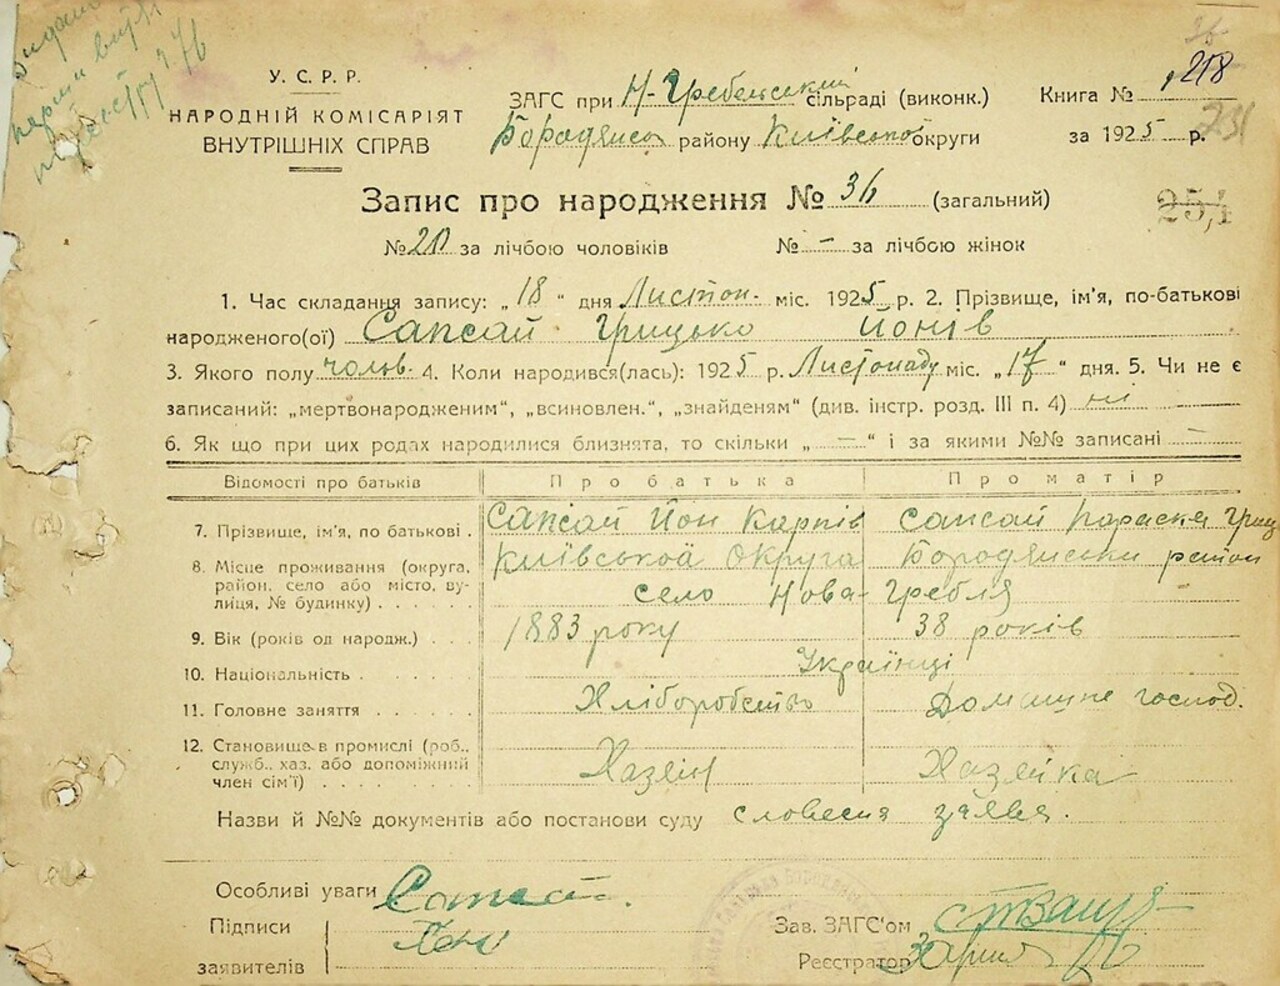 У. С. Р. Р.
НАРОДНІЙ КОМІСАРІЯТ
ВНУТРІШНІХ СПРАВ
ЗАГС при Н-Гребельський сільраді (виконк.)
Бородянсь району Київської округи
Книга № 218
за 1925 р.
251
Запис про народження № 36 (загальний)
25,1
№ 20 за лічбою чоловіків № – за лічбою жінок
1. Час складання запису: „18“ дня Листоп. міс. 1925 р. 2. Прізвище, ім'я, по-батькові
народженого(ої) Сапсай Грицько Йонів
3. Якого полу чолов. 4. Коли народився(лась): 1925 р. Листопаду міс. „17“ дня. 5. Чи не є
записаний: „мертвонародженим“, „всиновлен.“, „знайденям“ (див. інстр. розд. III п. 4) ні
6. Як що при цих родах народилися близнята, то скільки „ — “ і за якими №№ записані —
Відомості про батьків Про батька Про матір
7. Прізвище, ім'я, по батькові . Сапсай Йон Карпів Сапсай Параска Гриц
8. Місце проживання (округа, Київської Округа Бородянськи район
район, село або місто, ву-
лиця, № будинку) . . . . . . село Нова-Гребля
9. Вік (років од народж.) . . . 1883 року 38 років
10. Національність . . . . . . . Українці
11. Головне заняття . . . . . . Хліборобство Домашнє господ.
12. Становище в промислі (роб.,
служб., хаз. або допоміжний
член сім'ї) . . . . . . . . Хазяїн Хазяйка
Назви й №№ документів або постанови суду словесня заява.
Особливі уваги
Підписи
заявителів
Зав. ЗАГС'ом
Реєстратор